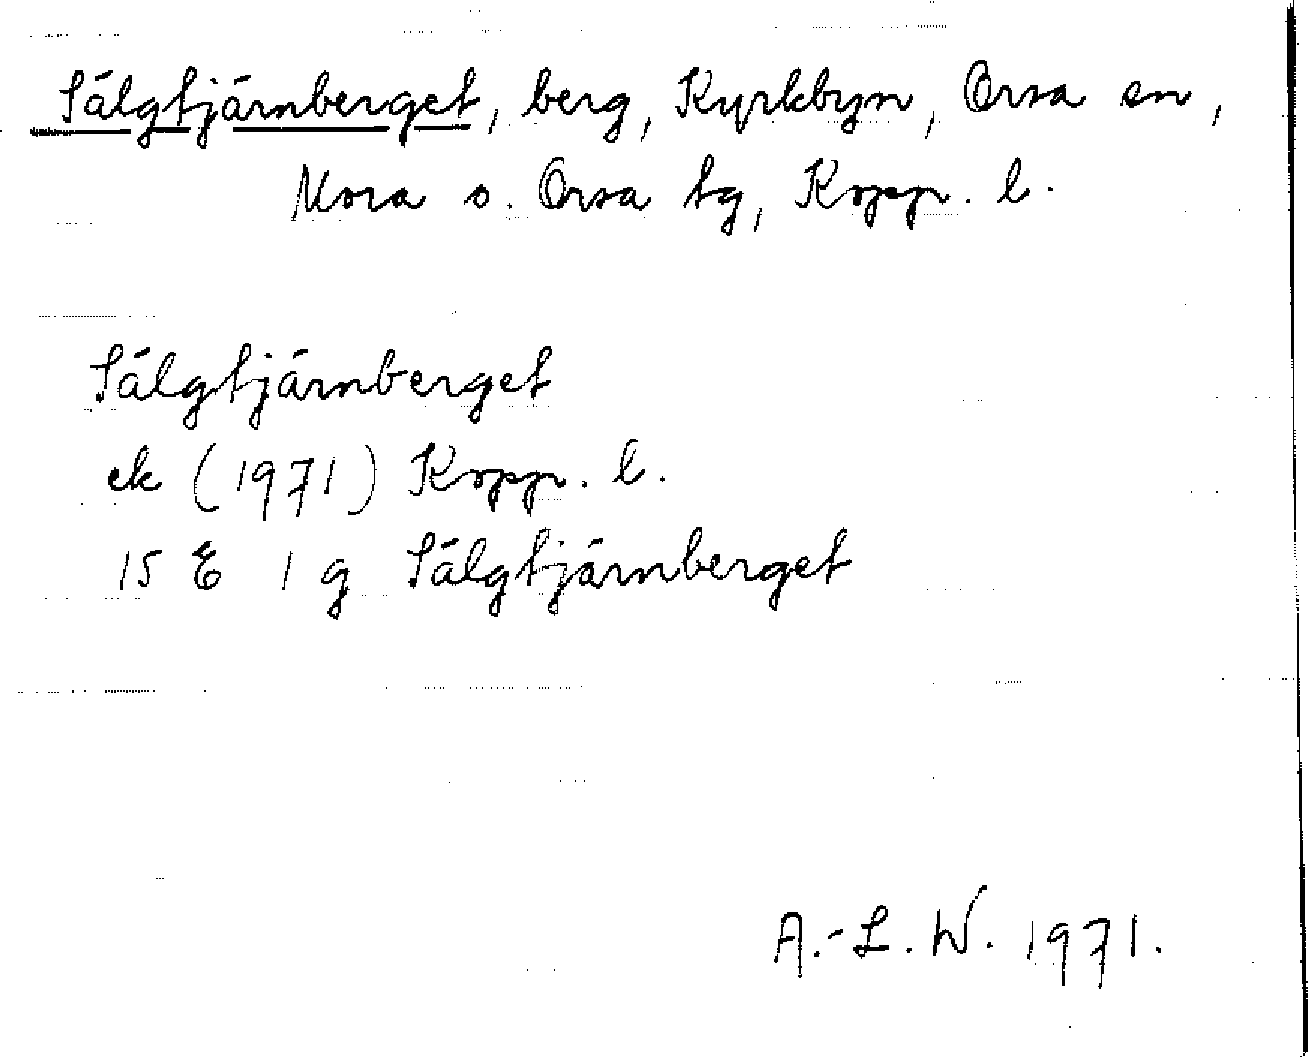 Sälgtjärnberget, berg, Kyrkbyn, Orsa sn,
Mora o. Orsa tg, Kopp. l.
Sälgtjärnberget
ek (1971) Kopp. l.
15 E 1 g Sälgtjärnberget
A.-L. W. 1971.